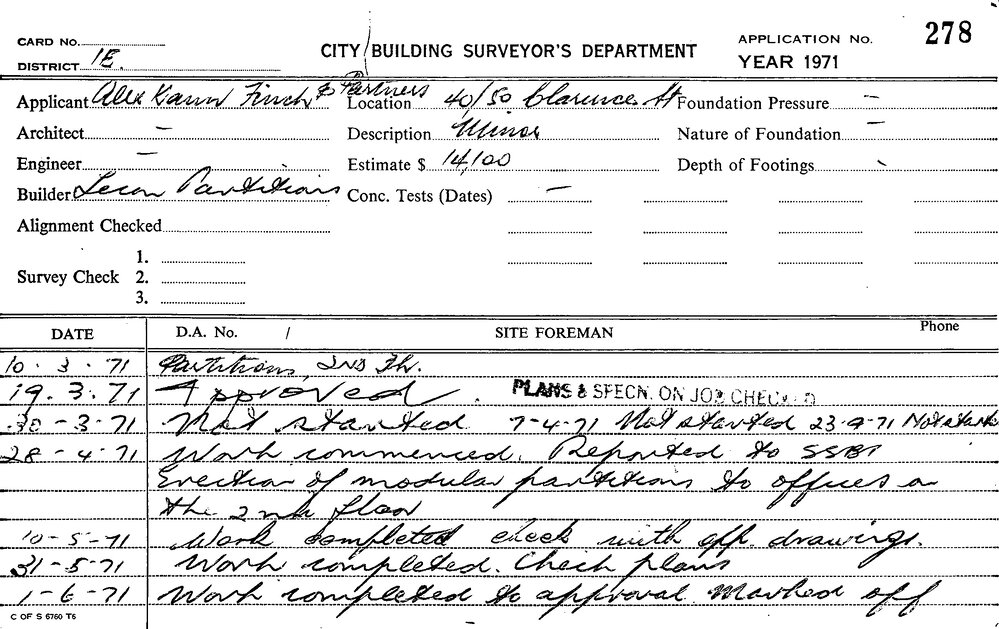 CARD No.
DISTRICT 1E
CITY BUILDING SURVEYOR'S DEPARTMENT
APPLICATION No. 278
YEAR 1971
Applicant Alex Kann Finch & Partners Location 40/50 Clarence St Foundation Pressure —
Architect — Description Minor Nature of Foundation —
Engineer — Estimate $ 14,100 Depth of Footings -
Builder Lecon Partitions Conc. Tests (Dates) —
Alignment Checked
Survey Check 1.
2.
3.
DATE D.A. No. / SITE FOREMAN Phone
10 . 3 . 71 Partitions,
19. 3. 71 Approved. PLANS & SPECN. ON JOB CHECKED
30 - 3 - 71 Not started 7-4-71 Not started 23-9-71 Not started
28 - 4 - 71 Work commenced. Reported to
Erection of modular partitions to offices on
the 2nd floor
10 - 5 - 71 Work completed check with app. drawings.
31 - 5 - 71 Work completed. Check plans
1 - 6 - 71 Work completed to approval Marked off
C OF S 6760 T6